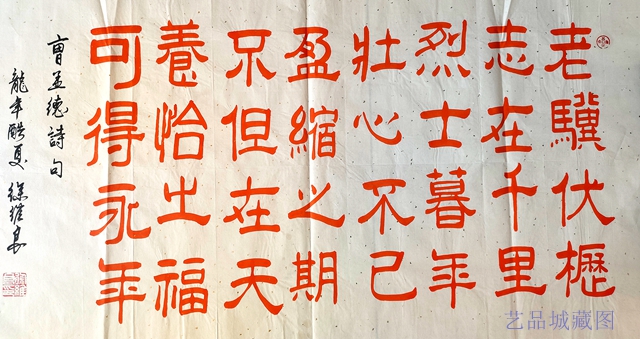 老驥伏櫪
志在千里
烈士暮年
壮心不已
盈縮之期
不但在天
養怡之福
可得永年
曹孟德詩句
龍年酷夏
艺品城藏图